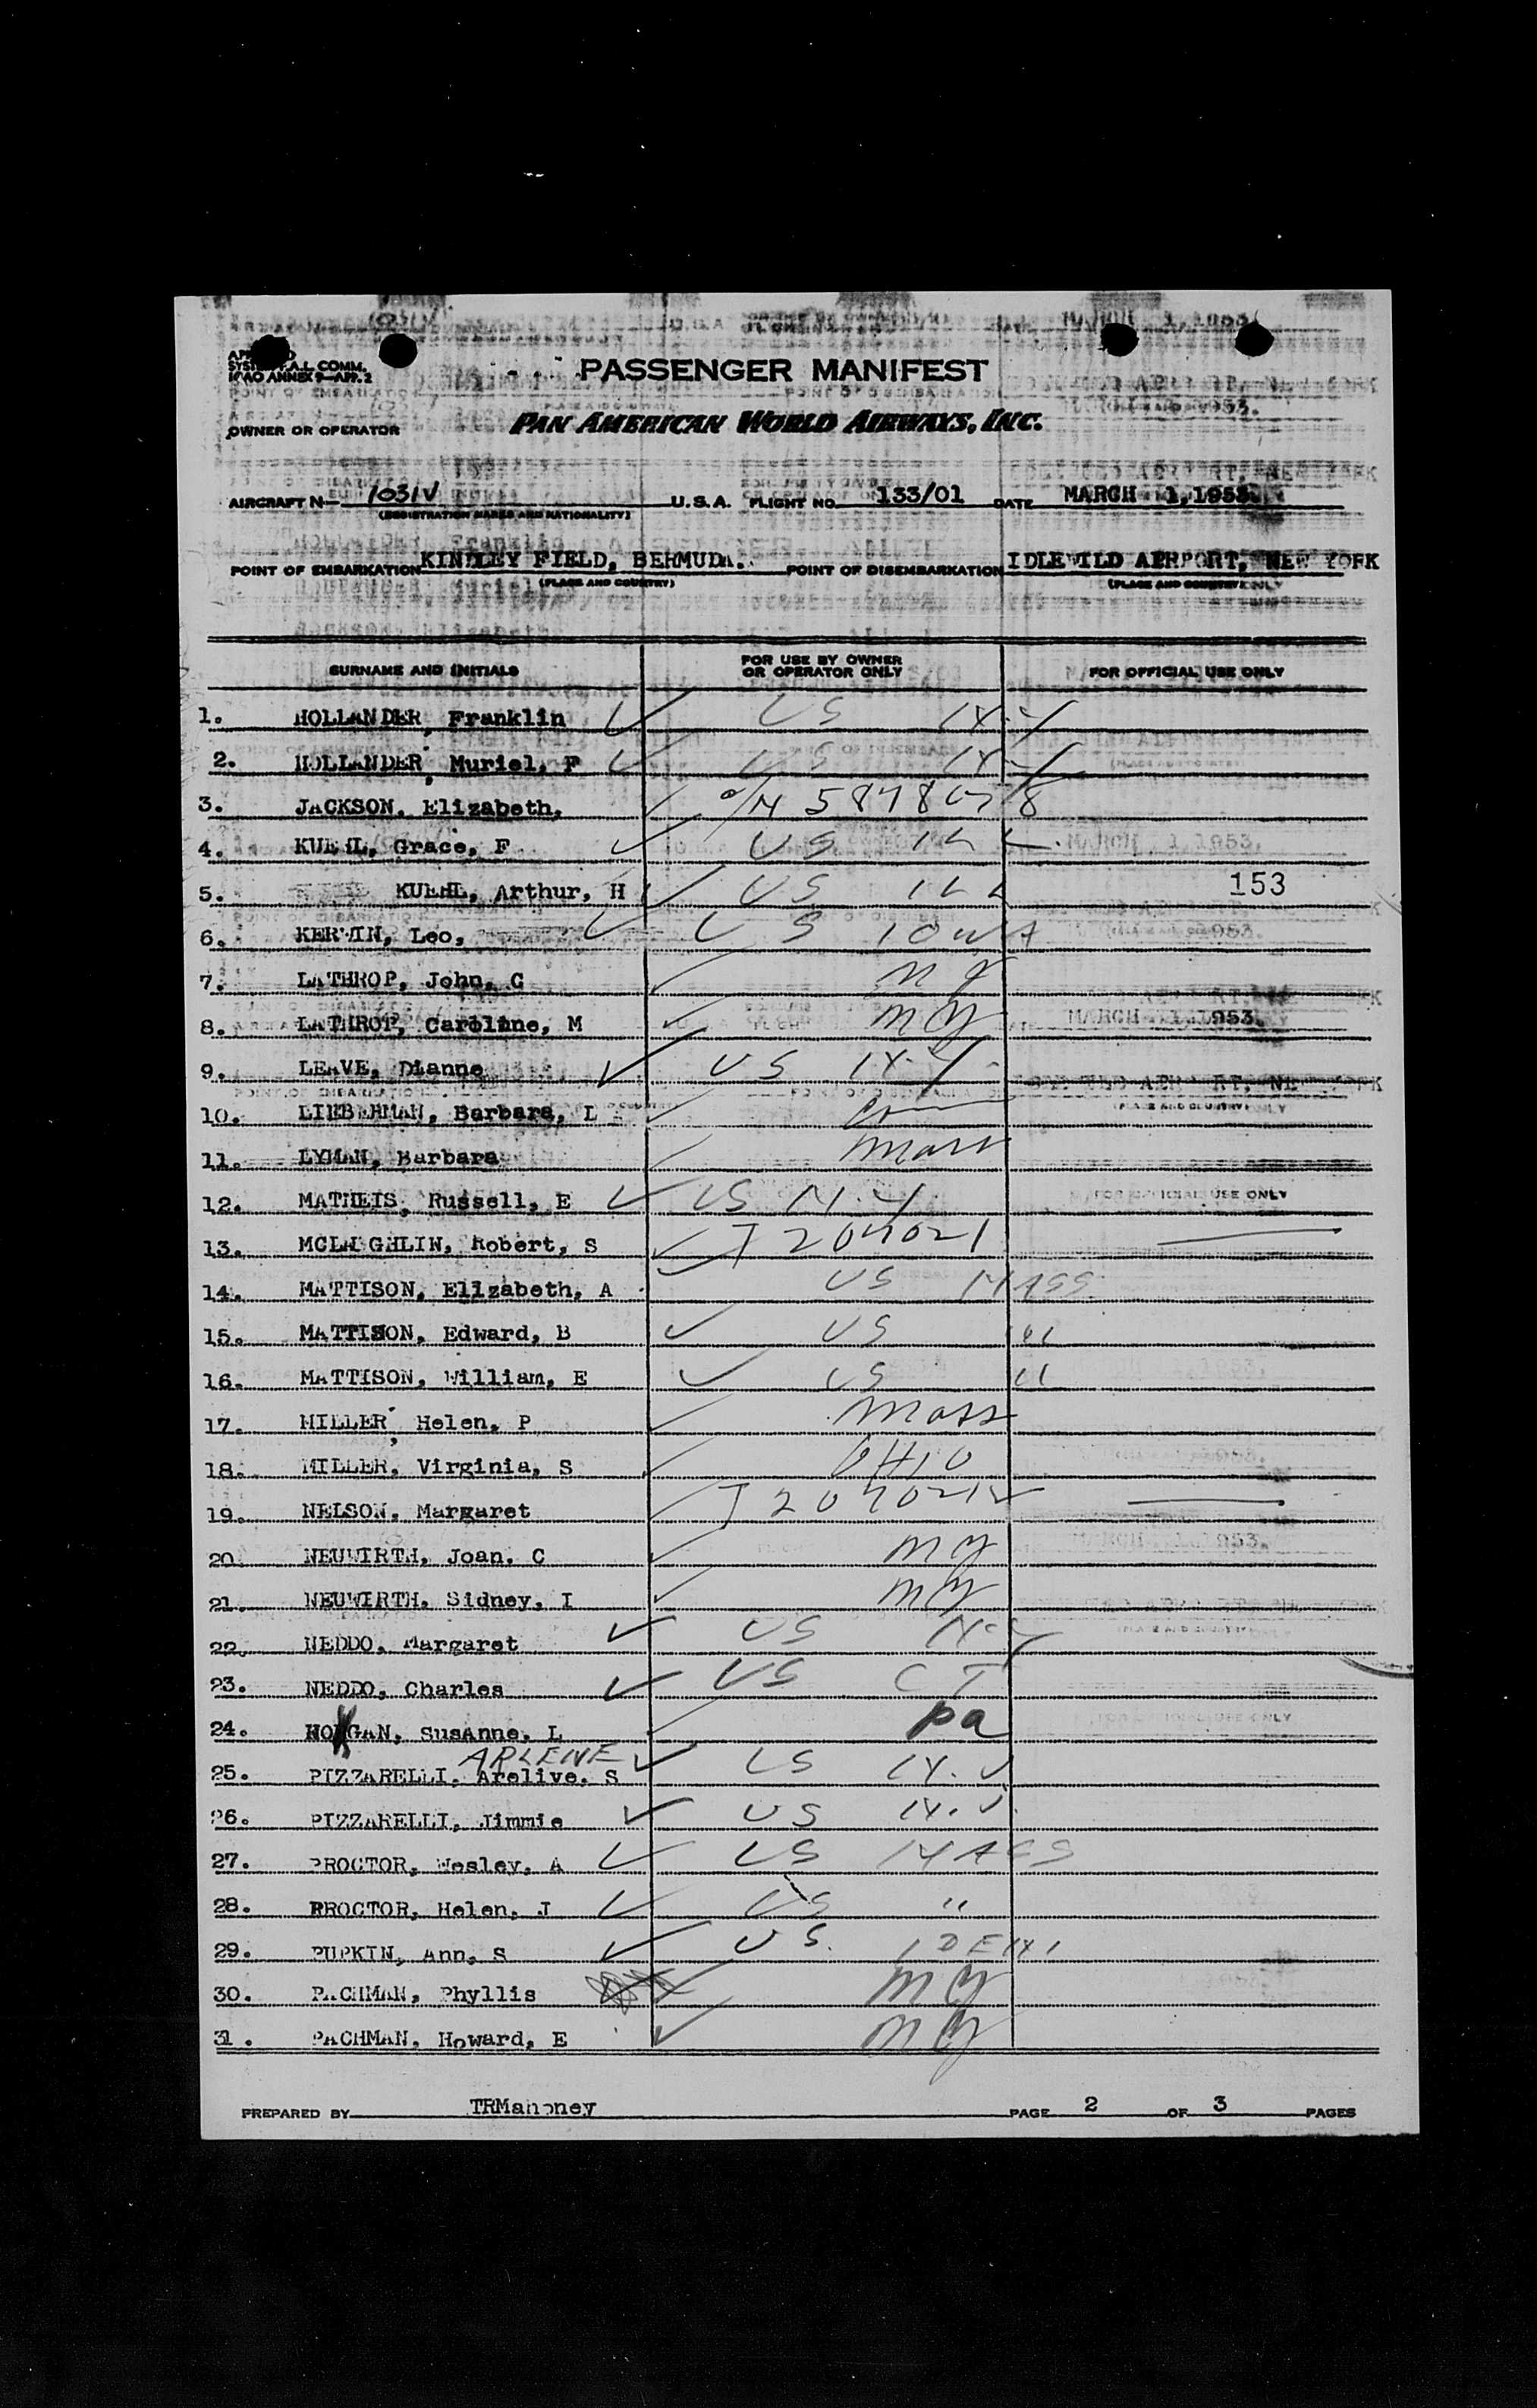 SYSTEM F.A.L. COMM.
ICAO ANNEX 9—APP. 2
PASSENGER MANIFEST
OWNER OR OPERATOR PAN AMERICAN WORLD AIRWAYS, INC.
AIRCRAFT N— 1031V U.S.A. FLIGHT NO. 133/01 DATE MARCH 1, 1953.
(REGISTRATION MARKS AND NATIONALITY)
POINT OF EMBARKATION KINDLEY FIELD, BERMUDA. POINT OF DISEMBARKATION IDLEWILD AIRPORT, NEW YORK
(PLACE AND COUNTRY) (PLACE AND COUNTRY)
SURNAME AND INITIALS FOR USE BY OWNER OR OPERATOR ONLY FOR OFFICIAL USE ONLY
1. HOLLANDER, Franklin ✓ US N.Y
2. HOLLANDER, Muriel, F ✓ US N.Y
3. JACKSON, Elizabeth, ✓
4. KUEHL, Grace, F ✓ US ILL.
5. KUEHL, Arthur, H ✓ US ILL 153
6. KERWIN, Leo, ✓ US IOWA
7. LATHROP, John, C ✓ NY
8. LATHROP, Caroline, M ✓ NY
9. LEAVE, Dianne ✓ US N.Y.
10. LIEBERMAN, Barbara, L ✓
11. LYMAN, Barbara ✓ Mass
12. MATHEIS, Russell, E ✓ US N.Y.
13. MCLAUGHLIN, Robert, S ✓ I 207021
14. MATTISON, Elizabeth, A ✓ US MASS
15. MATTISON, Edward, B ✓ US "
16. MATTISON, William, E ✓ US "
17. MILLER, Helen, P ✓ Mass
18. MILLER, Virginia, S ✓ OHIO
19. NELSON, Margaret ✓
20. NEUWIRTH, Joan, C ✓ NY
21. NEUWIRTH, Sidney, I ✓ NY
22. NEDDO, Margaret ✓ US N.Y
23. NEDDO, Charles ✓ US CT
24. HORGAN, SusAnne, L ✓ Pa
ARLENE
25. PIZZARELLI, Arelive, S ✓ US N.J
26. PIZZARELLI, Jimmie ✓ US N.J.
27. PROCTOR, Wesley, A ✓ US MASS
28. PROCTOR, Helen, J ✓ US "
29. PUPKIN, Ann, S ✓ US.
30. PACHMAN, Phyllis ✓ NY
31. PACHMAN, Howard, E ✓ NY
PREPARED BY TRMahoney PAGE 2 OF 3 PAGES